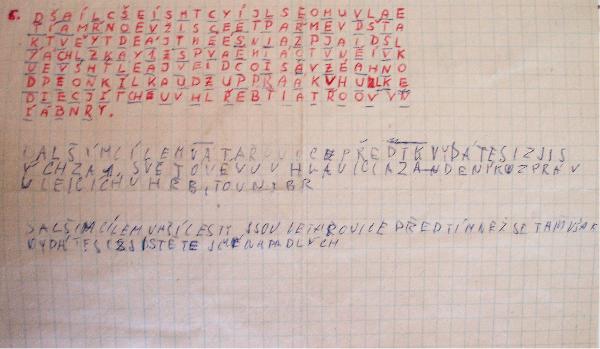 6. DŠAÍLCŠEÍSMTCYÍJLSEOMUVLAE
TÍAMRNOEVŽISCEETPARMEVDSTA
KTVEYTDEAJTMEESNIAZPJAIDSL
TYACHLZKAY1ZSPVAEHLAOTVNEIVK
UEVSHTLEAJVEIDCOISAVZEAHNO
DPEONKÍLKAUDZUPPRAAKVHUZLKE
DIECJÍTCHEUVHLŘEBTIATŘOOVVN
ÍÁBNRY.
DALŠÍMCÍLEMVATAROVICEPŘEDTÍKVYDÁTESIZJIS
ÝCHZA1.SVĚTOVÉVUVHLAVICIAZANDENÍKUZPRAV
ULEJÍCÍCHUHŘBITOVNÍBR
DALŠÍMCÍLEMVAŠÍCESTY JSOU LETAROVICE PŘEDTÍMNEŽSETAMVŠAK
VYDÁTESIZJISTĚTE JMÉNAPADLÝCH